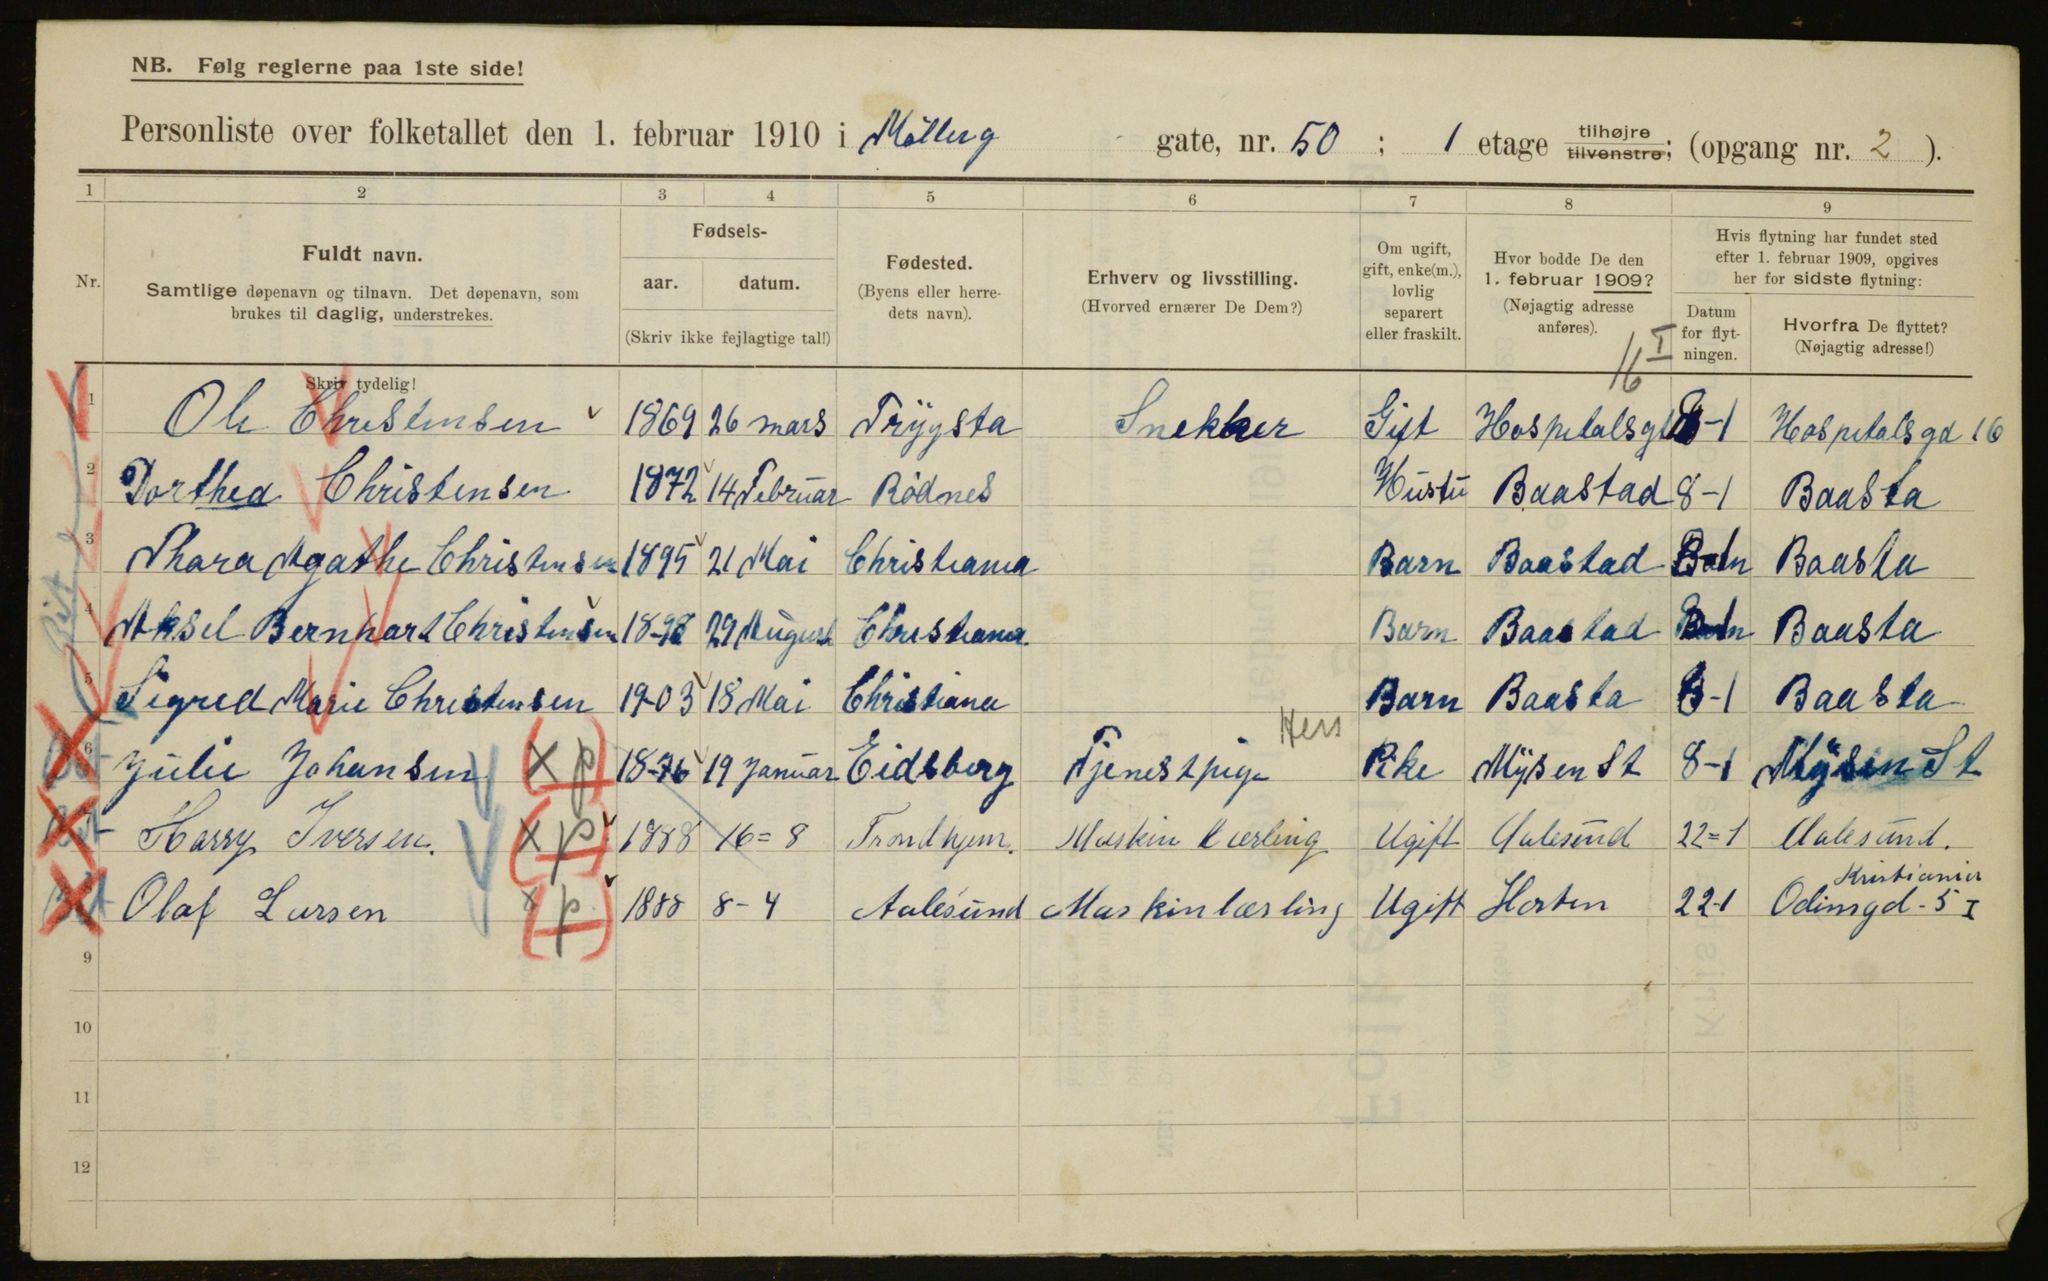 NB. Følg reglerne paa 1ste side!
Personliste over folketallet den 1. februar 1910 i Møllerg gate, nr. 50 ; 1 etage tilhøjre tilvenstre; (opgang nr. 2 ).
1 2 3 4 5 6 7 8 9
Nr.
Fuldt navn.
Samtlige døpenavn og tilnavn. Det døpenavn, som
brukes til daglig, understrekes.
Skriv tydelig!
Fødsels-
aar. datum.
(Skriv ikke fejlagtige tal!)
Fødested.
(Byens eller herre-
dets navn).
Erhverv og livsstilling.
(Hvorved ernærer De Dem?)
Om ugift,
gift, enke(m.),
lovlig
separert
eller fraskilt.
Hvor bodde De den
1. februar 1909?
(Nøjagtig adresse
anføres).
Hvis flytning har fundet sted
efter 1. februar 1909, opgives
her for sidste flytning:
Datum
for flyt-
ningen.
Hvorfra De flyttet?
(Nøjagtig adresse!)
16 I
1 Ole Christensen 1869 26 mars Trygsta Snekker Gift Hospitalsgt 8-1 Hospitalsgd 16
2 Dorthea Christensen 1872 14 Februar Rødnes Hustu Baastad 8-1 Baasta
3 Thora Agathe Christensen 1895 21 Mai Christiania Barn Baastad Baasta
4 Aksel Bernhart Christensen 1898 29 August Christiania Barn Baastad Baasta
5 Sigred Marie Christensen 1903 18 Mai Christiana Barn Baasta 8-1 Baasta
Hers
6 Julie Johansen X p 1876 19 Januar Eidsberg Tjenestpige Pike Mysen St 8-1 Mysen St
7 Harry Iversen. X p 1888 16=8 Trondhjem. Maskin lærling Ugift Aalesund 22=1 Aalesund.
Kristiania
8 Olaf Larsen X p 1888 8-4 Aalesund Maskinlærling Ugift Horten 22-1 Odinsgd-5 I
9
10
11
12